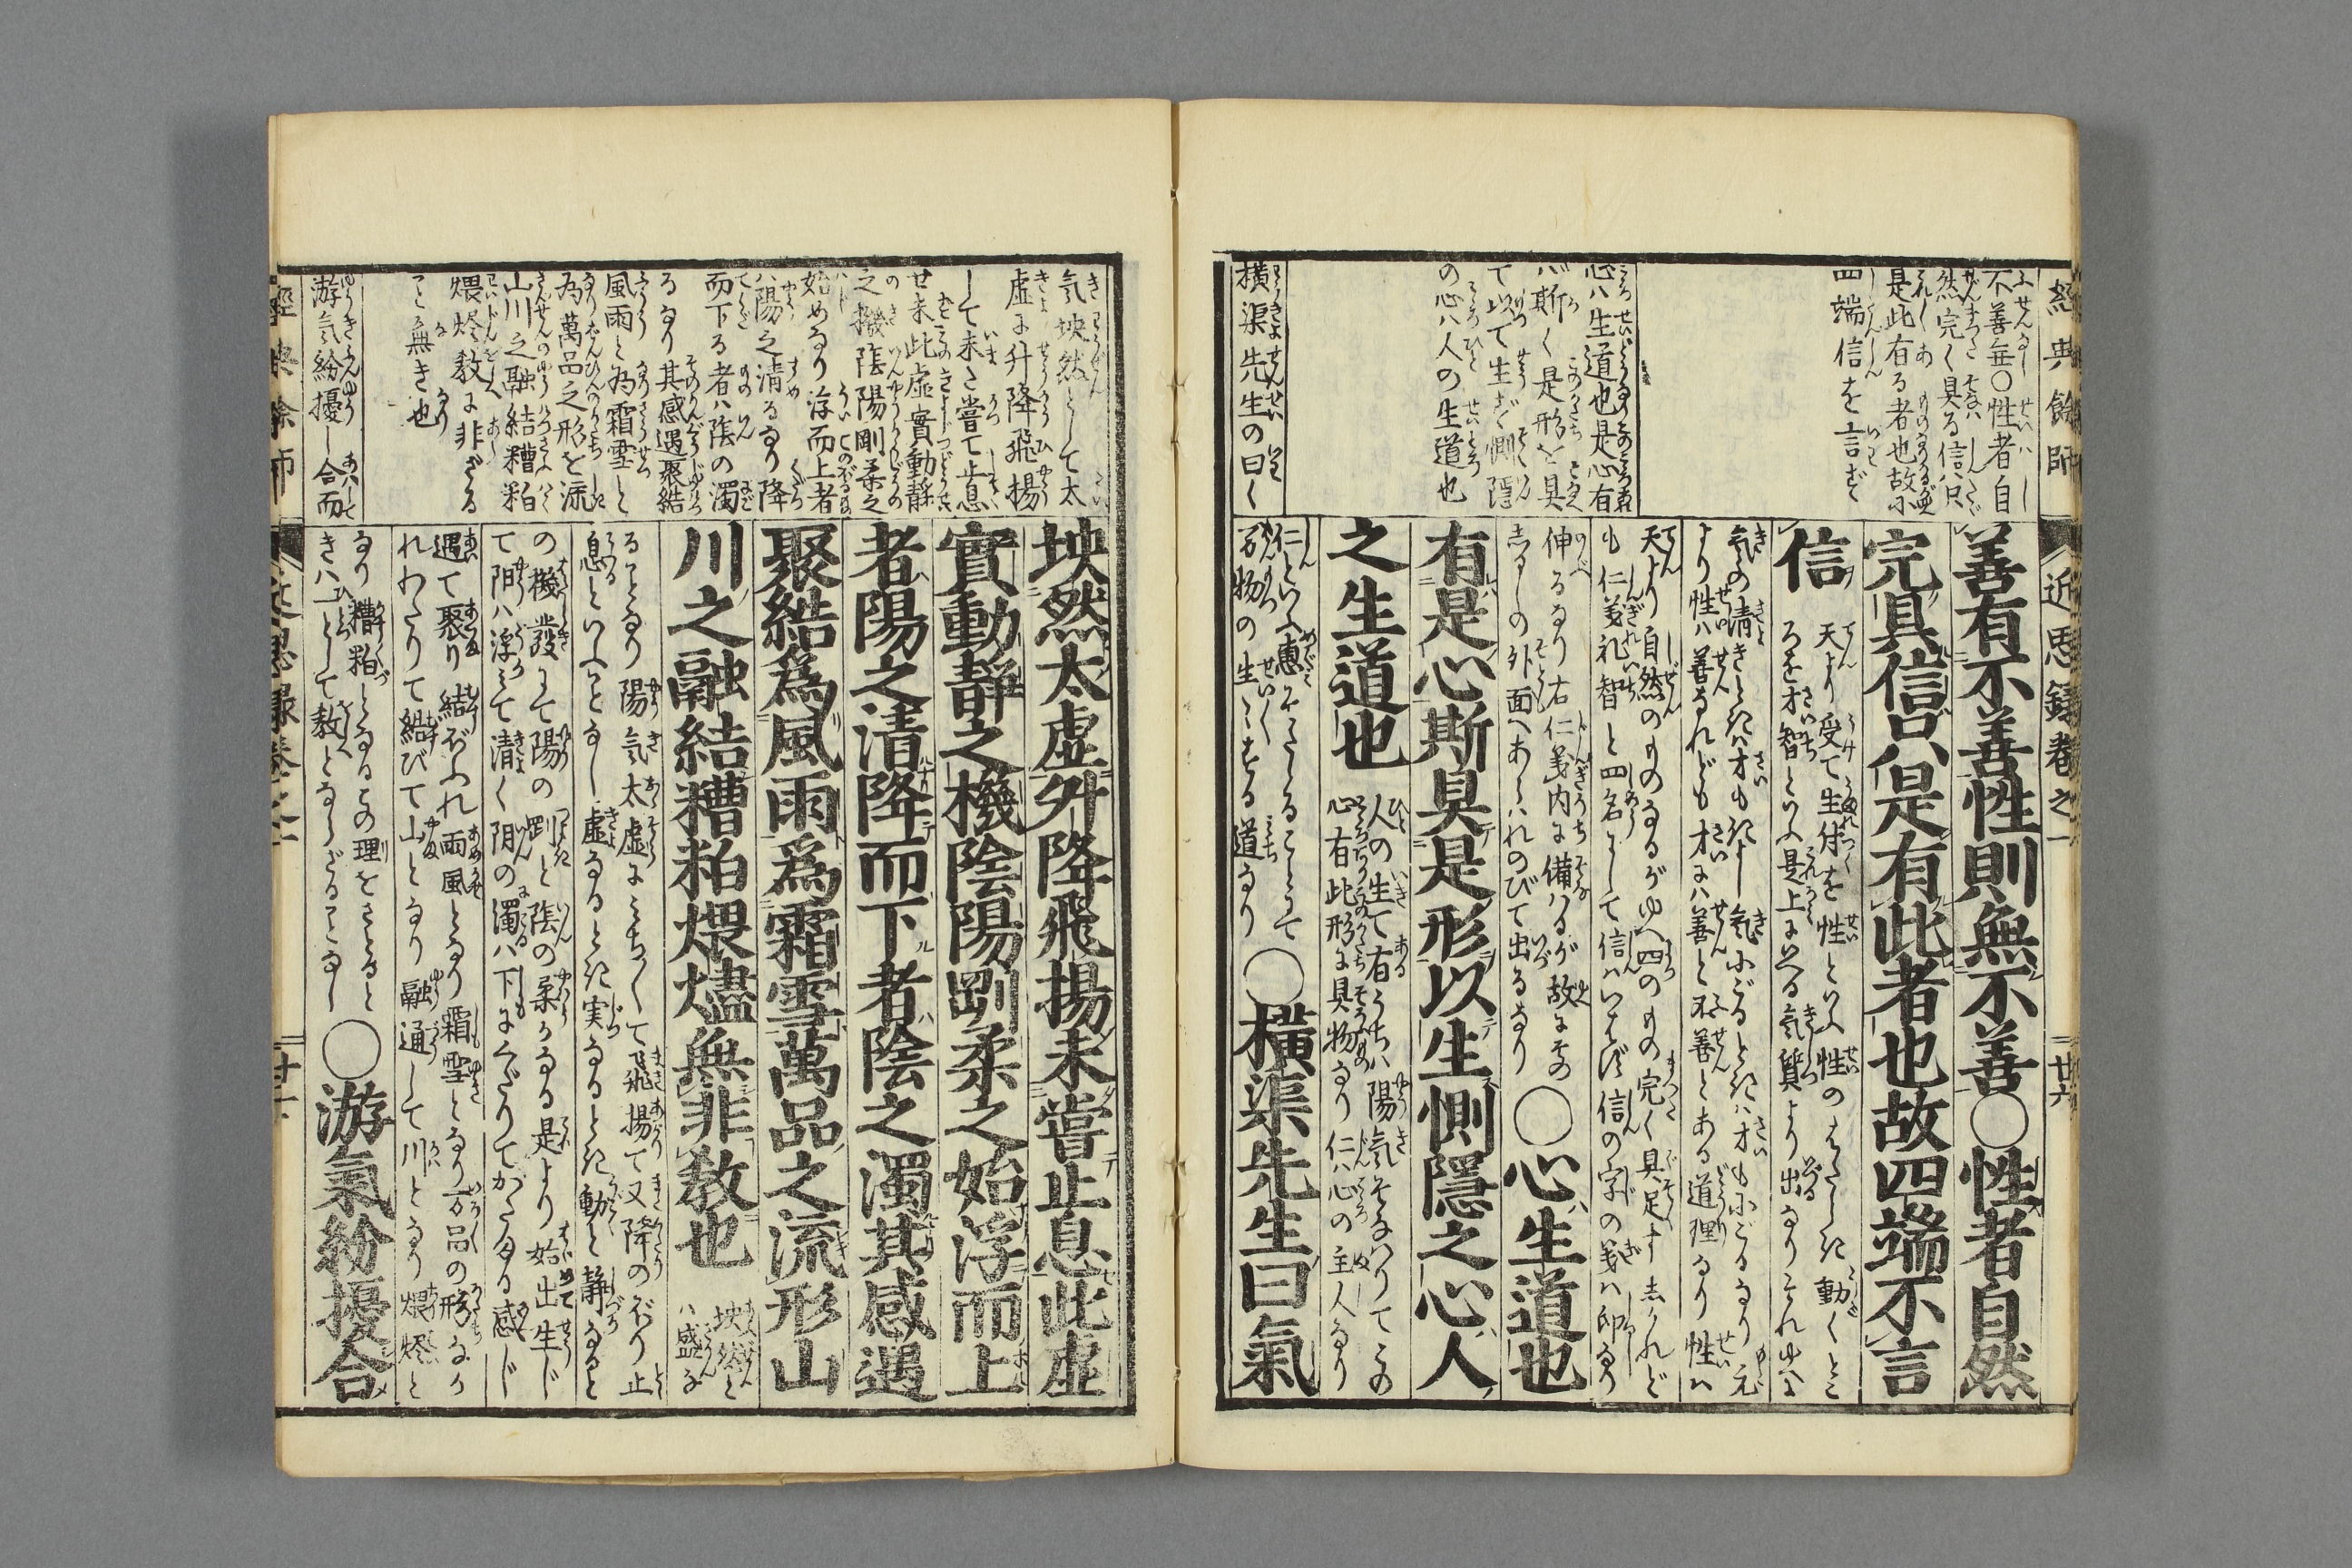 經典餘師
近思録巻之一
廿六
不善無〇性者自
然完く具る信ハ只
是此有る者也故に
四端信を言ず
心ハ生道也是心有
バ斯く是形を具
て以て生ず惻隠
の心ハ人の生道也
横渠先生の曰く
善有不善性則無不善〇性者自然
完具信只是有此者也故四端不言
信
天より受て生付を性といふ性のはたらき動くとこ
ろを才智といふ是上に出る気質より出るなりそれゆへに
気の清きときハ才もきよし気にごるときハ才もにごるなり元
より性ハ善なれども才にハ善と不善とある道理なり性ハ
天より自然のものなるがゆへ四のもの完く具足す志かれど
も仁義礼智と四名にして信ハいはず信の字の義ハ即なり
伸るなり右仁義内に備ハるが故にその
志るしの外面へあらハれのびて出るなり
〇心生道也
有是心斯具是形以生惻隱之心人
之生道也
人の生て有うちハ陽気そなハりてこの
心有此形に具物なり仁ハ心の主人なり
仁といふ恵にいたることにて
万物の生〻する道なり
〇橫渠先生曰氣
気坱然として太
虚に升降飛揚
して未さ嘗て止息
せ未此虚實動静
之機陰陽剛柔之
始めなり浮而上者
ハ陽之清るなり降
而下る者ハ陰の濁
るなり其感遇聚結
風雨と為霜雪と
為萬品之形を流
山川之融結糟粕
煨燼教に非ざる
こと無き也
游気紛擾し合而
坱然太虚升降飛揚未嘗止息此虚
實動靜之機陰陽剛柔之始浮而上
者陽之清降而下者陰之濁其感遇
聚結爲風雨爲霜雪萬品之流形山
川之融結糟粕煨燼無非教也
坱然と
ハ盛な
ることなり陽気太虚にみち〳〵て飛揚て又降のぼり止
息といふことなし虚なるとき実なるとき動と静なると
の機發にて陽の剛と陰の柔かなる是より始出生じ
て陽ハ浮みて清く陰の濁ハ下にくだりてかたまる感じ
遇て聚り結ぼふれ雨風となり霜雪となり万品の形なが
れわたりて結びて山となり融通して川となり煨燼と
なり糟粕となるこの理をさとると
きハ一として教とならざることなし
〇游氣紛擾合
經典餘師
近思録巻之一